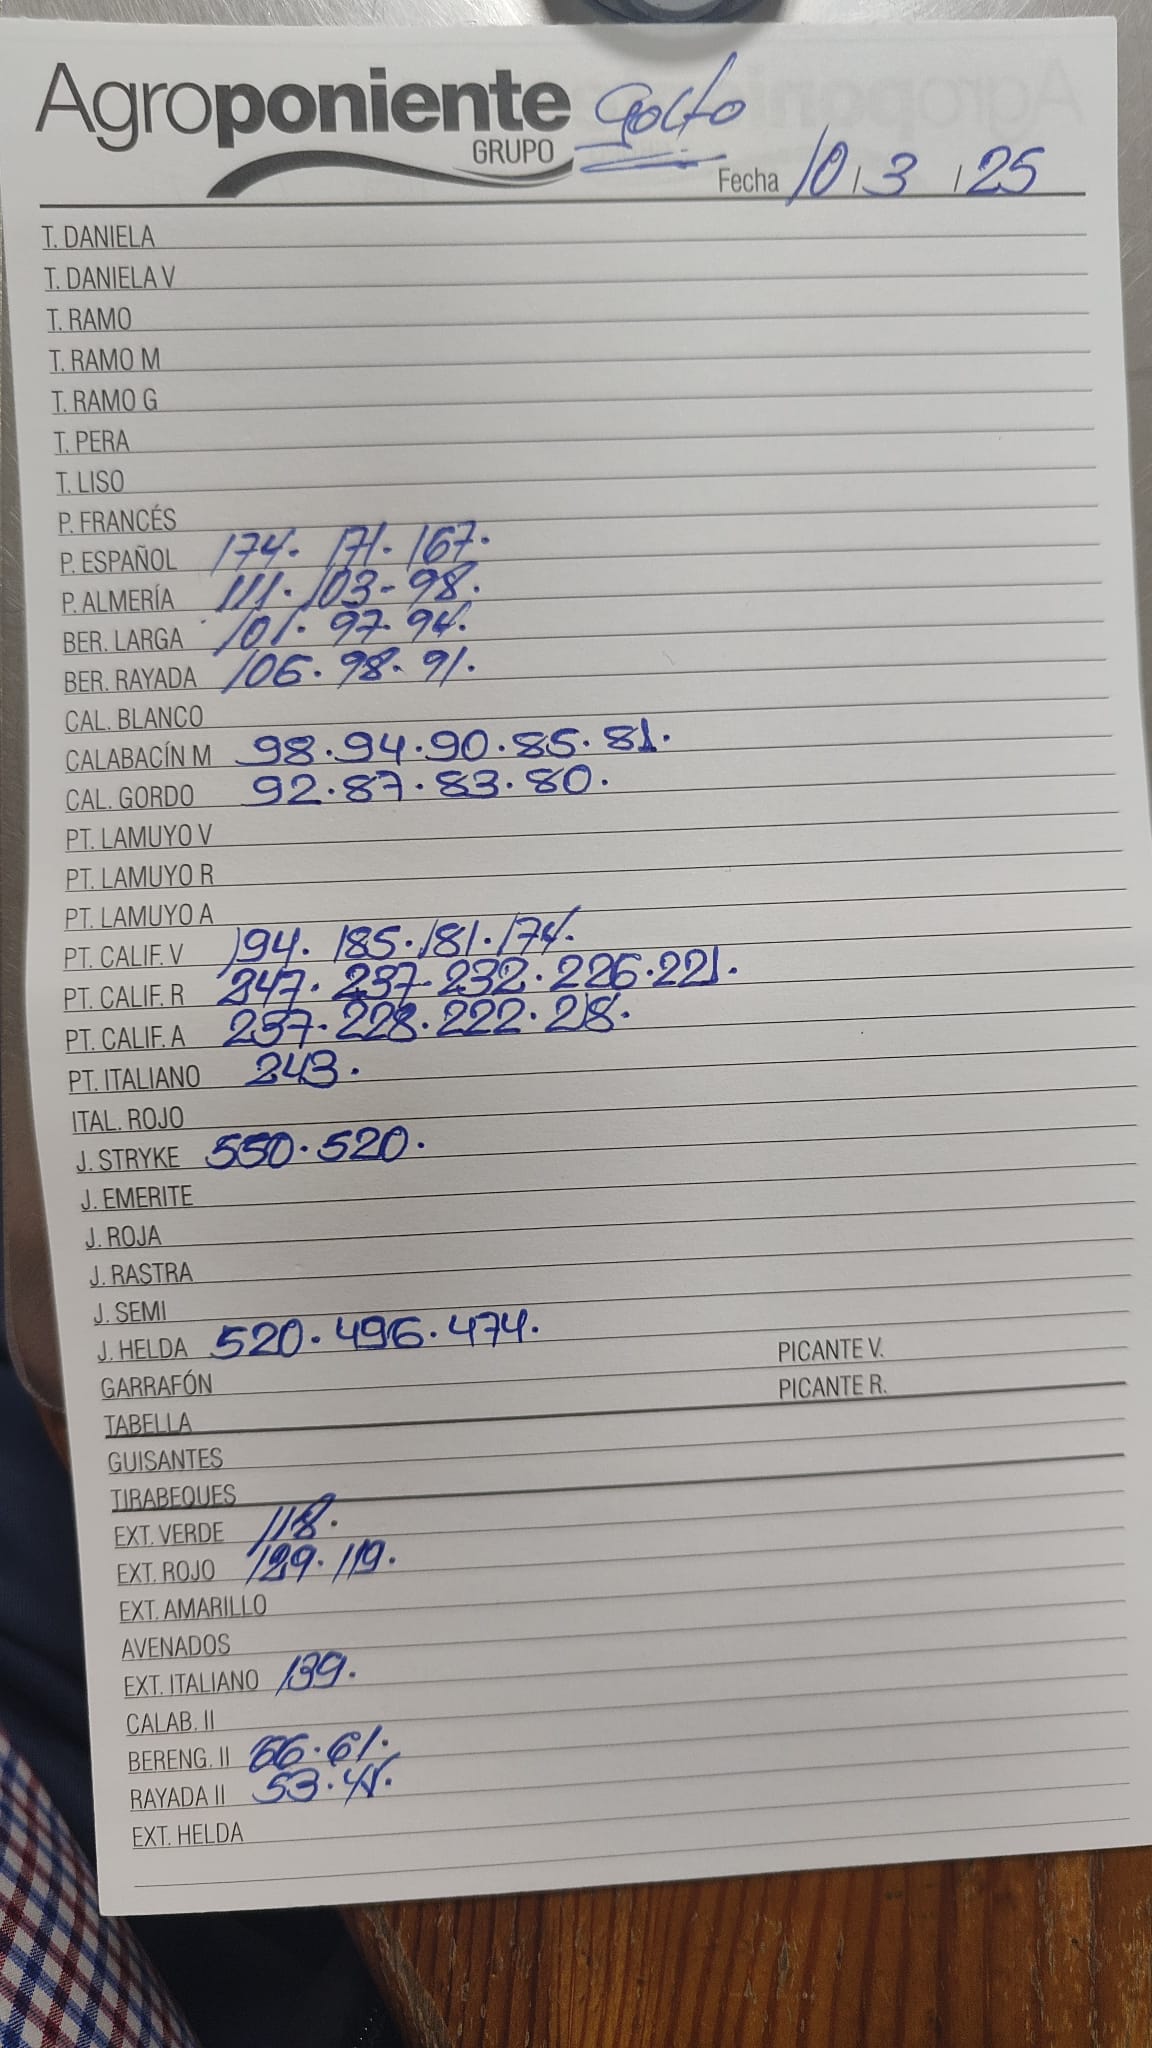 Agroponiente Golfo
GRUPO
Fecha 10/3/25
T. DANIELA
T. DANIELA V
T. RAMO
T. RAMO M
T. RAMO G
T. PERA
T. LISO
P. FRANCÉS
P. ESPAÑOL 174. 171. 167.
P. ALMERÍA 111. 103-98.
BER. LARGA 101. 97. 94.
BER. RAYADA 106. 98. 91.
CAL. BLANCO
CALABACÍN M 98.94.90.85.81.
CAL. GORDO 92.87.83.80.
PT. LAMUYO V
PT. LAMUYO R
PT. LAMUYO A
PT. CALIF. V 194. 185. 181. 174.
PT. CALIF. R 247. 237. 232. 226. 221.
PT. CALIF. A 237. 228. 222. 218.
PT. ITALIANO 243.
ITAL. ROJO
J. STRYKE 550. 520.
J. EMERITE
J. ROJA
J. RASTRA
J. SEMI
J. HELDA 520. 496. 474.
PICANTE V.
GARRAFÓN
PICANTE R.
TABELLA
GUISANTES
TIRABEQUES
EXT. VERDE 118.
EXT. ROJO 129. 119.
EXT. AMARILLO
AVENADOS
EXT. ITALIANO 139.
CALAB. II
BERENG. II 66. 61.
RAYADA II 53.
EXT. HELDA